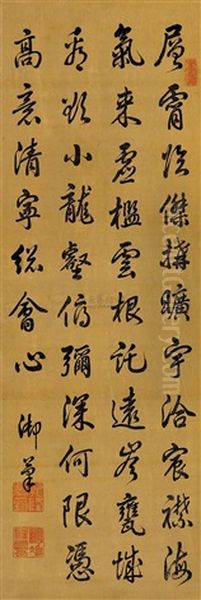 層霄臨傑搆曠宇洽宸襟海
氣来虛檻雲根託遠岑甕城
看欲小龍壑俯彌深何限憑
高意清寧総會心
御筆